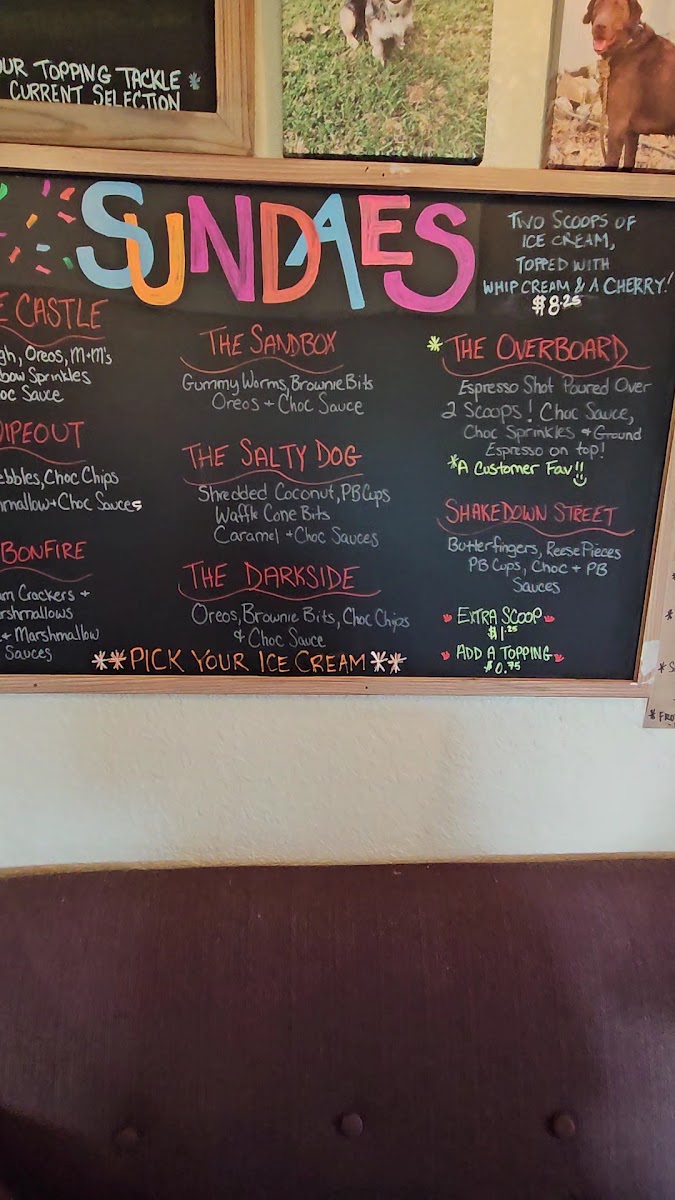 TOPPING TACKLE *
CURRENT SELECTION
SUNDAES
TWO SCOOPS OF
ICE CREAM,
TOPPED WITH
WHIP CREAM & A CHERRY!
$8.25
CASTLE
Oreos, M+M's
Sprinkles
Sauce
, Choc Chips
+ Choc Sauces
BONFIRE
Crackers +
+ Marshmallow
Sauces
THE SANDBOX
Gummy Worms, Brownie Bits
Oreos + Choc Sauce
THE SALTY DOG
Shredded Coconut, PB Cups
Waffle Cone Bits
Caramel + Choc Sauces
THE DARKSIDE
Oreos, Brownie Bits, Choc Chips
& Choc Sauce
**PICK YOUR ICE CREAM**
* THE OVERBOARD
Espresso Shot Poured Over
2 Scoops! Choc Sauce,
Choc Sprinkles + Ground
Espresso on top!
*A Customer Fav!!
SHAKEDOWN STREET
Butterfingers, Reese Pieces
PB Cups, Choc + PB
Sauces
EXTRA SCOOP
$1.25
ADD A TOPPING
$0.75